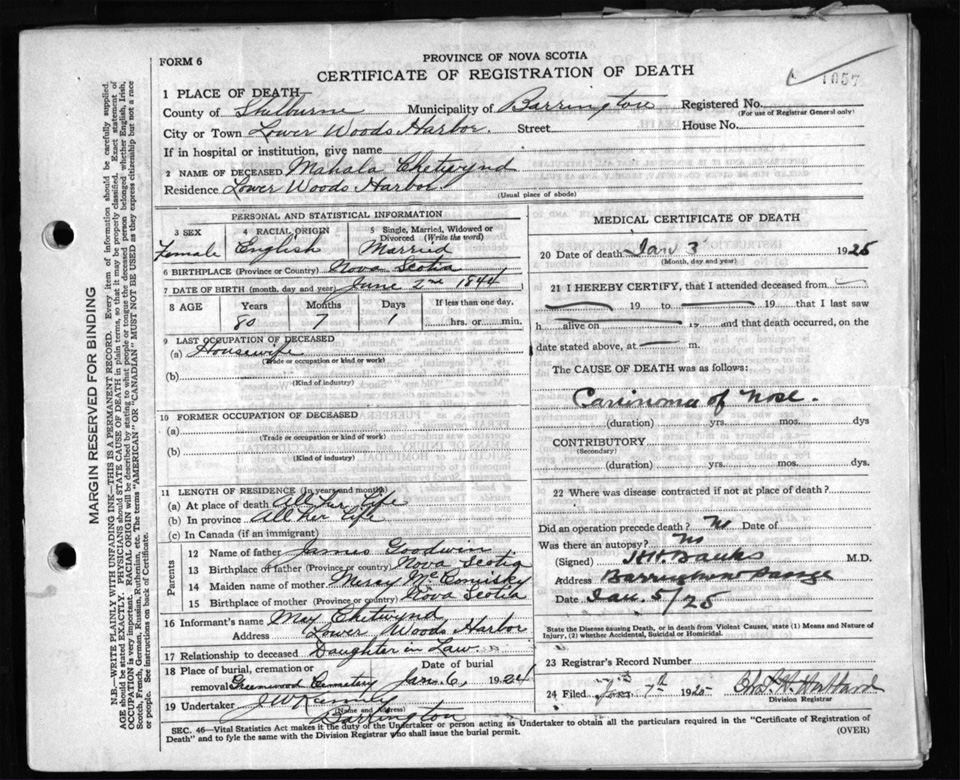 FORM 6
PROVINCE OF NOVA SCOTIA
CERTIFICATE OF REGISTRATION OF DEATH
1057
1 PLACE OF DEATH
County of Shelburne Municipality of Barrington Registered No.
(For use of Registrar General only)
City or Town Lower Woods Harbor. Street House No.
If in hospital or institution, give name
2 NAME OF DECEASED Mahala Chetwynd
Residence Lower Woods Harbor.
(Usual place of abode)
PERSONAL AND STATISTICAL INFORMATION
3 SEX 4 RACIAL ORIGIN 5 Single, Married, Widowed or Divorced (Write the word)
Female English Married
6 BIRTHPLACE (Province or Country) Nova Scotia
7 DATE OF BIRTH (month, day and year) June 2nd 1844
8 AGE Years Months Days If less than one day,
80 7 1 hrs. or min.
9 LAST OCCUPATION OF DECEASED
(a) Housewife
(Trade or occupation or kind of work)
(b)
(Kind of industry)
10 FORMER OCCUPATION OF DECEASED
(a)
(Trade or occupation or kind of work)
(b)
(Kind of industry)
11 LENGTH OF RESIDENCE (In years and months)
(a) At place of death All Her Life
(b) In province All Her Life
(c) In Canada (if an immigrant)
Parents
12 Name of father James Goodwin
13 Birthplace of father (Province or Country) Nova Scotia
14 Maiden name of mother Mercy McComisky
15 Birthplace of mother (Province or Country) Nova Scotia
16 Informant's name May Chetwynd
Address Lower Woods Harbor
17 Relationship to deceased Daughter in Law.
18 Place of burial, cremation or removal Greenwood Cemetery Date of burial Jan. 6, 1924
19 Undertaker
(Name and Address)
Barrington
MEDICAL CERTIFICATE OF DEATH
20 Date of death Jan 3 1925
(Month, day and year)
21 I HEREBY CERTIFY, that I attended deceased from
19 to 19 that I last saw
h alive on 19 and that death occurred, on the
date stated above, at m.
The CAUSE OF DEATH was as follows:
Carcinoma of nose.
(duration) yrs. mos. dys
CONTRIBUTORY
(Secondary)
(duration) yrs. mos. dys.
22 Where was disease contracted if not at place of death?
Did an operation precede death? No Date of
Was there an autopsy? No
(Signed) Banks M.D.
Address Barrington Passage
Date Jan. 5/25
State the Disease causing Death, or in death from Violent Causes, state (1) Means and Nature of Injury, (2) whether Accidental, Suicidal or Homicidal.
23 Registrar's Record Number
24 Filed Jan 7th 1925 Hubbard
Division Registrar
SEC. 46—Vital Statistics Act makes it the duty of the Undertaker or person acting as Undertaker to obtain all the particulars required in the "Certificate of Registration of
Death" and to fyle the same with the Division Registrar who shall issue the burial permit. (OVER)
MARGIN RESERVED FOR BINDING
N.B.—WRITE PLAINLY WITH UNFADING INK—THIS IS A PERMANENT RECORD. Every item of information should be carefully supplied.
AGE should be stated EXACTLY. PHYSICIANS should STATE CAUSE OF DEATH in plain terms, so that it may be properly classified. Exact statement of
OCCUPATION is very important. RACIAL ORIGIN will be described by stating to what people or tongue the deceased person belonged whether English, Irish,
Scotch, French, German, Russian, Ruthenian, etc. The terms "AMERICAN" OR "CANADIAN" MUST NOT BE USED as they express citizenship but not a race
or people. See instructions on back of Certificate.